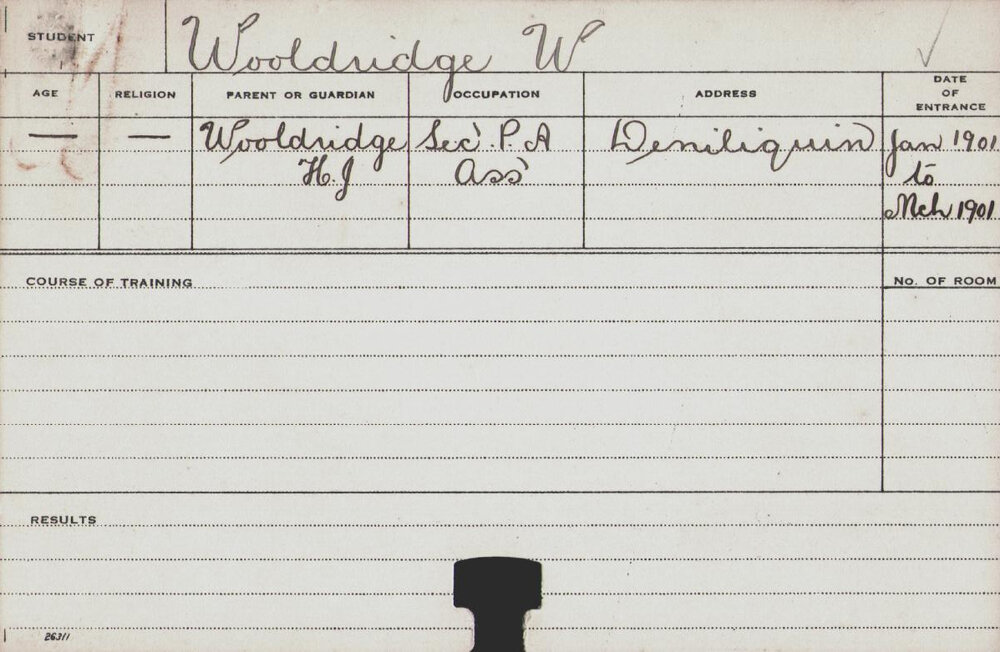 STUDENT Wooldridge W
AGE RELIGION PARENT OR GUARDIAN OCCUPATION ADDRESS DATE OF ENTRANCE
— — Wooldridge Sec'. P. A Deniliquin Jan 1901
H. J Ass' to
Mch 1901
COURSE OF TRAINING No. OF ROOM
RESULTS
26311